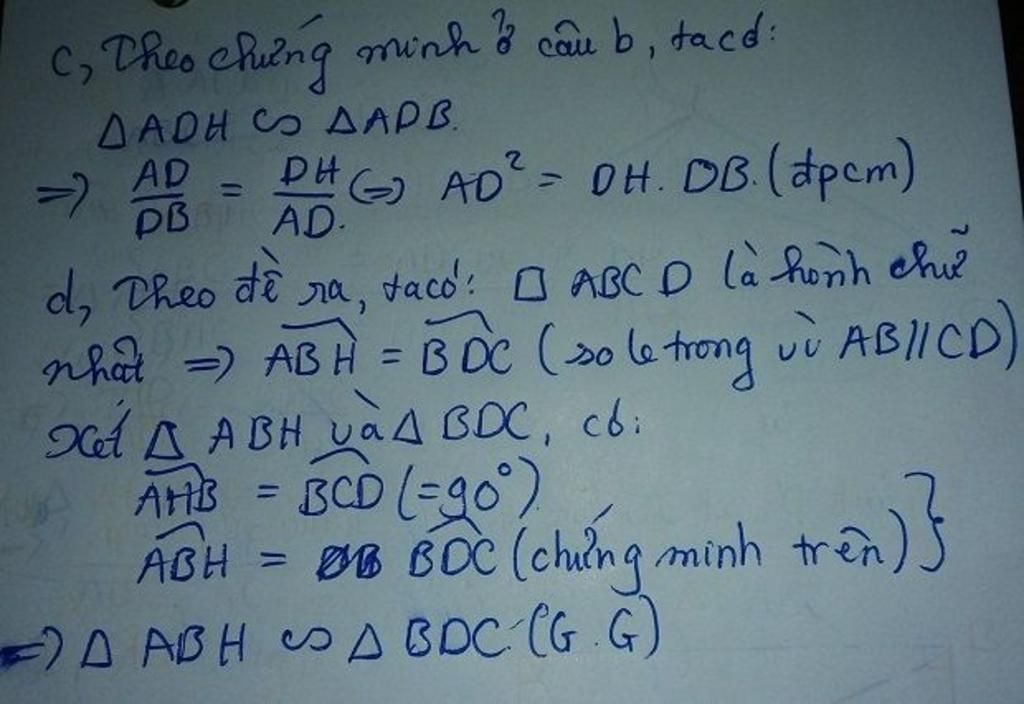 c, Theo chứng minh ở câu b, ta có:
△ADH ∽ △ADB.
=> AD/DB = DH/AD. <=> AD² = DH. DB. (đpcm)
d, Theo đề ra, ta có: □ ABCD là hình chữ
nhật => ABH = BDC (so le trong vì AB//CD)
Xét △ ABH và △ BDC, có:
AHB = BCD (=90°)
ABH = BDC (chứng minh trên) }
=> △ ABH ∽ △ BDC. (G.G)